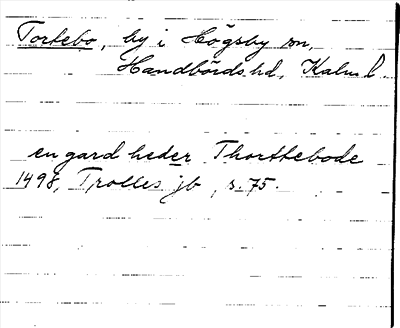 Tortebo, by i Högsby sn,
Handbörds hd, Kalm l.
en gard heder Thorttebode
1498, Trolles jb, s. 75.